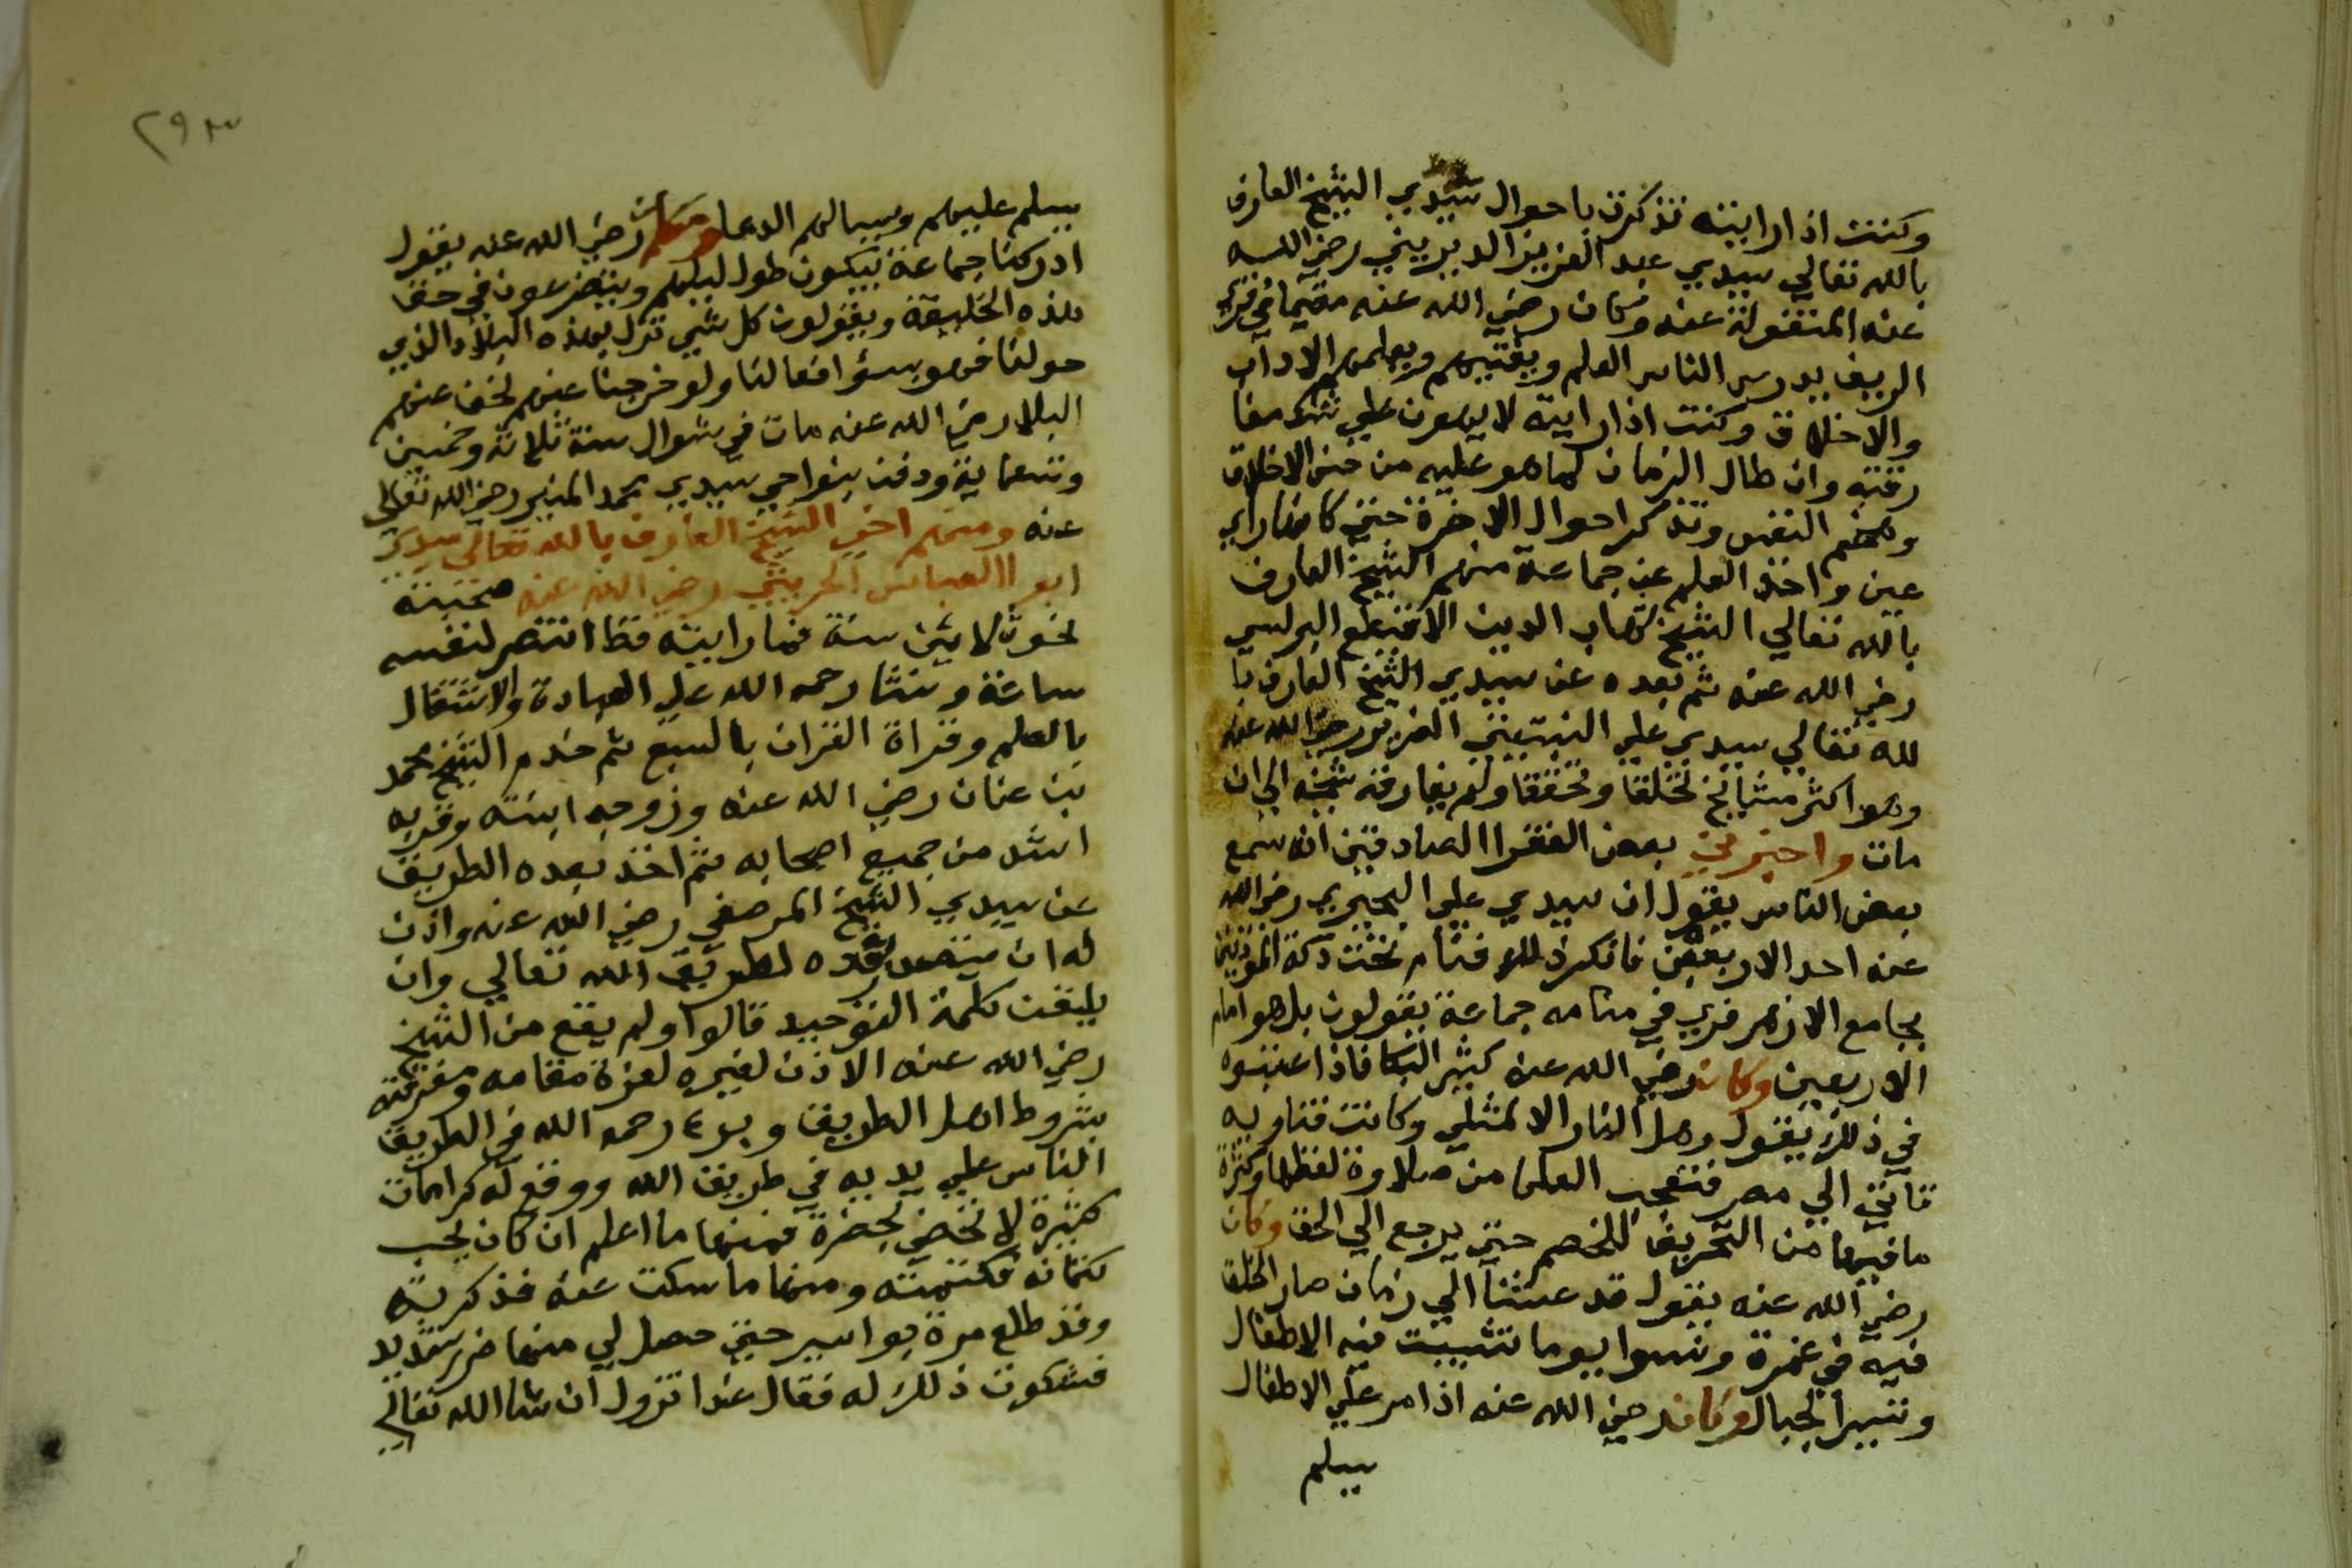 وكنت اذا رايته تذكرت باحوال سيدي الشيخ العارف
بالله تعالي سيدي عبد العزيز الديريني رضي الله
عنه المنقولة عنه وكان رضي الله عنه مقيما في
الريف يدرس الناس العلم ويفتيهم ويعلمهم الاداب
والاخلاق وكنت اذا رايته لا يهون علي
وان طال الزمان لما هو عليه من حسن الاخلاق
وهضم النفس وتذكر احوال الاخرة حتي كانها راي
عين واخذ العلم عن جماعة منهم الشيخ العارف
بالله تعالي الشيخ شهاب الدين الاقيطع البرلسي
رضي الله عنه ثم بعده عن سيدي الشيخ العارف با
لله تعالي سيدي علي النبتيتي الضرير رضي الله عنه
وهو اكثر مشايخ تخلقا وتحققا ولم يفارقه الي ان
مات واخبرني بعض الفقرا الصادقين انه سمع
بعض الناس يقول ان سيدي علي البحيري رضي الله
عنه احد الاربعين فانكر ذلك فنام تحت دكة المؤذنين
بجامع الازهر فري في منامه جماعة يقولون بل هو امام
الاربعين وكان رضي الله عنه كثير البكا فاذا عتبوه
في ذلك يقول وهل النار الا لمثلي وكانت فتاويه
تاتي الي مصر فتعجب العلما من حلاوة لفظها وكثرة
ما فيها من التحريف للخصم حتي يرجع الي الحق وكان
رضي الله عنه يقول قد عشنا الي زمان صار الخلق
فيه في غمرة ونسوا يوما تشيب فيه الاطفال
وتسير الجبال وكان رضي الله عنه اذا مر علي الاطفال
يسلم
٢٩٣
يسلم عليهم ويسالهم الدعا وكان رضي الله عنه يقول
ادركنا جماعة يبكون طول ليلهم ويتضرعون في حق
هذه الخليقة ويقولون كل شي نزل بهذه البلاد الذي
حولنا فهو بسؤ افعالنا ولو خرجنا عنهم لخف عنهم
البلا رضي الله عنه مات في شوال سنة ثلاثة وخمسين
وتسعماية ودفن بنواحي سيدي محمد المنير رضي الله تعالي
عنه ومنهم اخي الشيخ العارف بالله تعالي سيدي
ابو العباس الحريثي رضي الله عنه صحبته
نحو ثلاثين سنة فما رايته قط انتصر لنفسه
ساعة ونشا رحمه الله علي العبادة والاشتغال
بالعلم وقراة القران بالسبع ثم خدم الشيخ محمد
بن عنان رضي الله عنه وزوجه ابنته وقربه
اشد من جميع اصحابه ثم اخذ بعده الطريق
عن سيدي الشيخ المرصفي رضي الله عنه واذن
له ان يتصدر بعده لطريق الله تعالي وان
يلقن كلمة التوحيد قالوا ولم يقع من الشيخ
رضي الله عنه الاذن لغيره لعزة مقامه ومعرفته
بشروط اهل الطريق رحمه الله في الطريق
الناس علي يديه في طريق الله ووقع له كرامات
كثيرة لا تحصي بحضرة فمنها ما اعلم ان كان يحب
كتمانه فكتمته ومنها ما سكت عنه فذكرته
وقد طلع مرة بواسير حتي حصل لي منها ضرر شديد
فشكوت ذلك له فقال غدا تزول ان شا الله تعالي